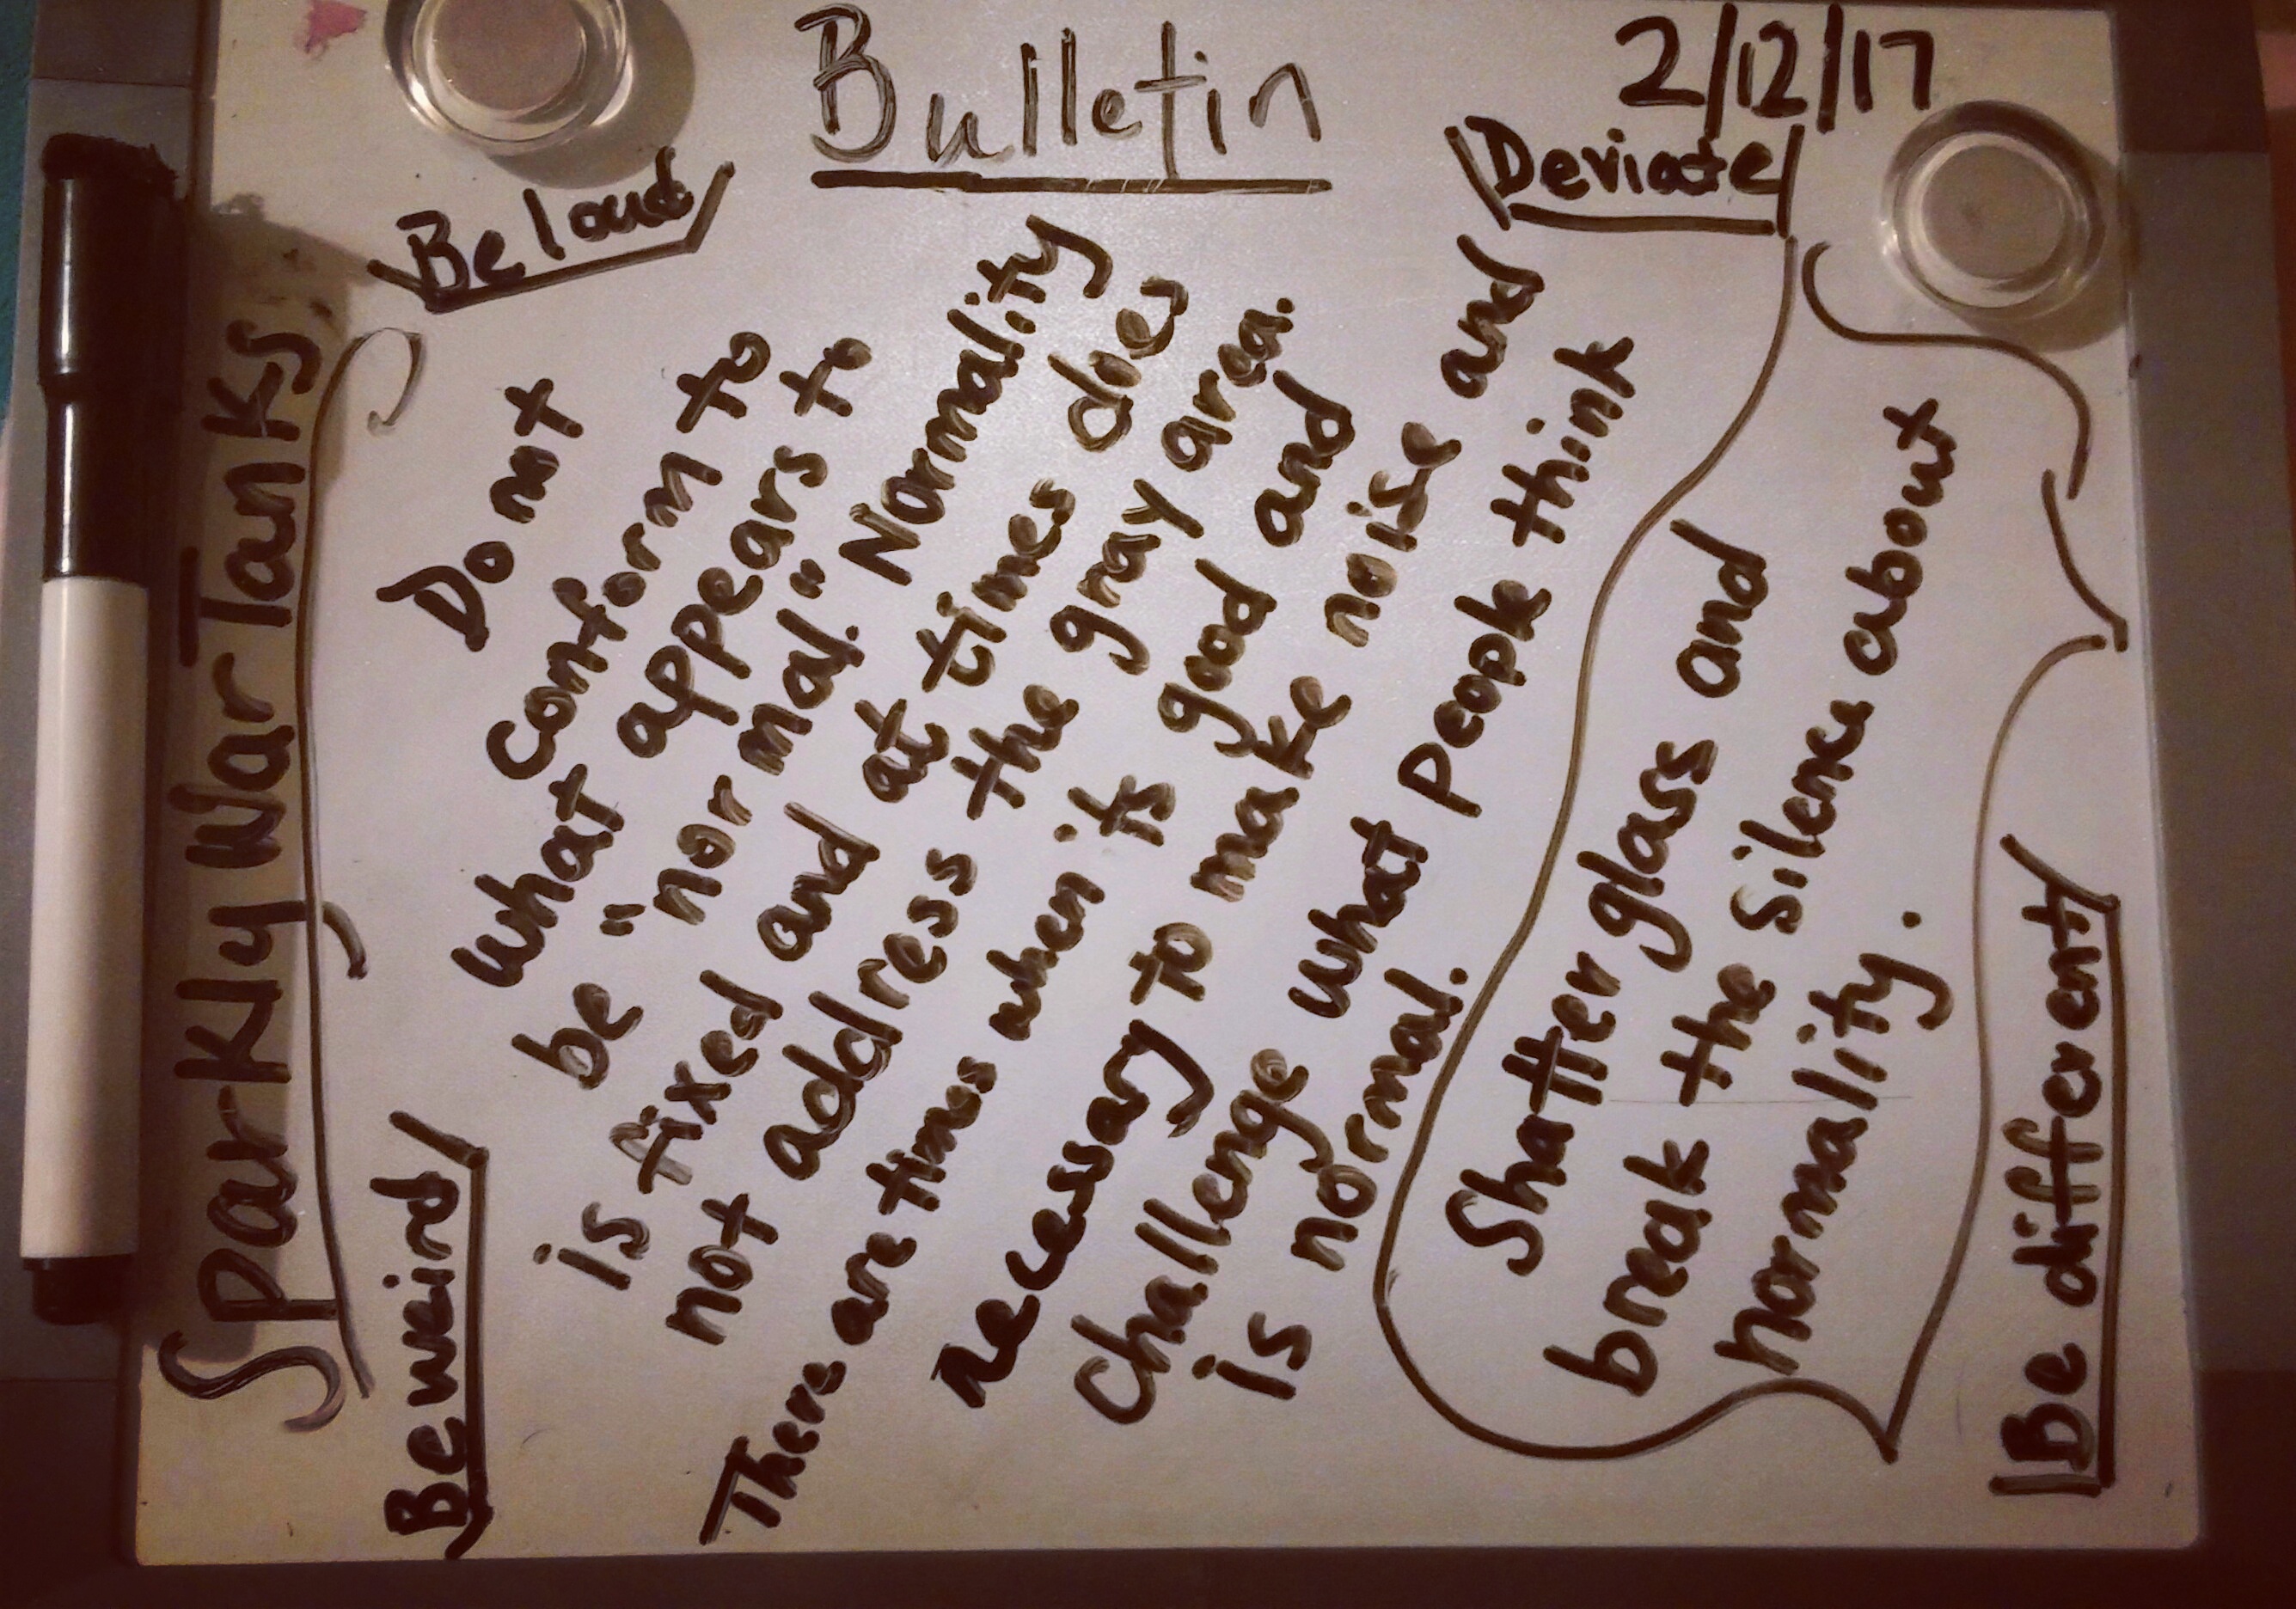 Bulletin
2/12/17
Sparkly War Tanks
Be loud
Deviate
Be weird
Be different
Do not
conform to
what appears to
be "normal." Normality
is fixed and at times does
not address the gray area.
There are times when its good and
necessary to make noise and
challenge what people think
is normal.
Shatter glass and
break the silence about
normality.